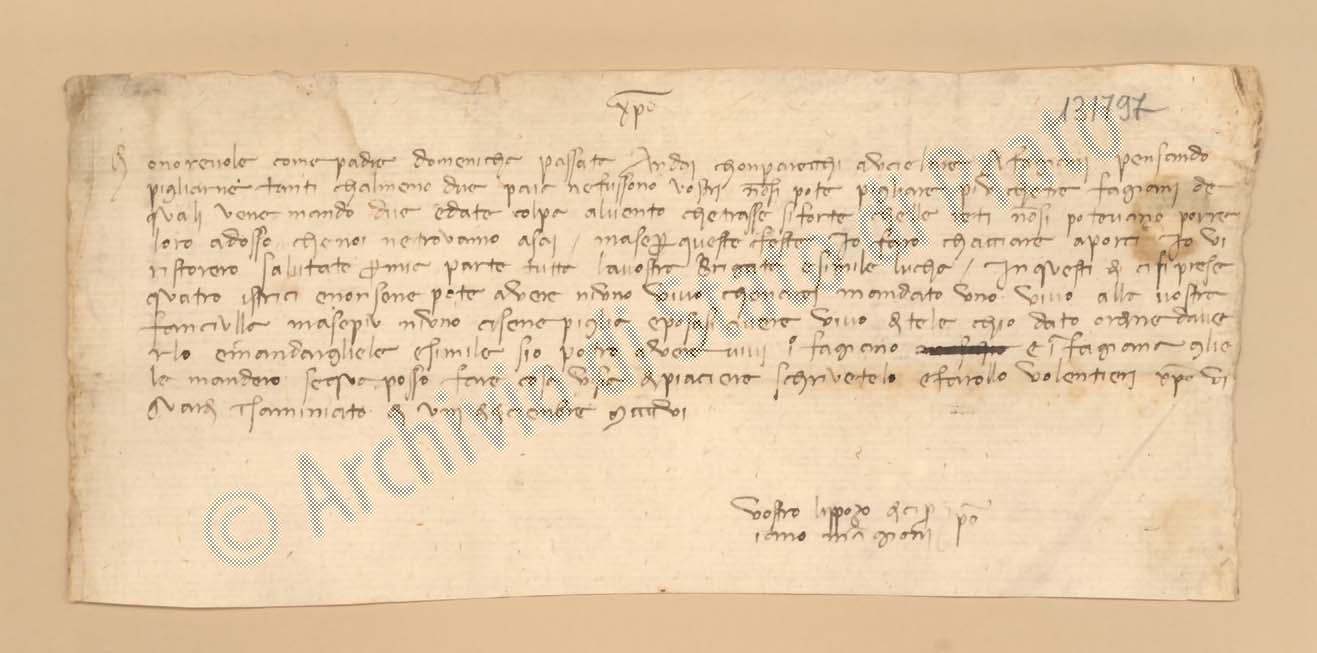 xpo
131797
onorevole come padre domenicha passata Andai chonparecchi a uciellare A fagiani pensando
pigliarne tanti chalmeno due paia nefussono vostri nosi pote pigliare piu che tre fagiani de
quali vene mando due edate colpa alvento chetrasse si forte chelle reti nosi potevano porre
loro adosso chenoi netrovamo asai / masep queste feste Io faro chacciare aporci Io vi
ristorero salutate p mia parte tutta lavostra brigata esimile lucha / In questi di cisi prese
quatro istrici enonsene pote avere niuno vivo chenarei mandato uno vivo alla vostra
fanciulla masepiu niuno cisene piglia eposasi avere vivo chio dato ordine dave
rlo emandargliele esimile sio potro avere vivi i fagiano e i fagiana glie
le mandero sequa posso fare cosa visia di piaciere schrivetelo efarollo volentieri xpo vi
guardi Tsaminiato di VIIII didiciembre
vostro
© Archivio di Stato di Prato